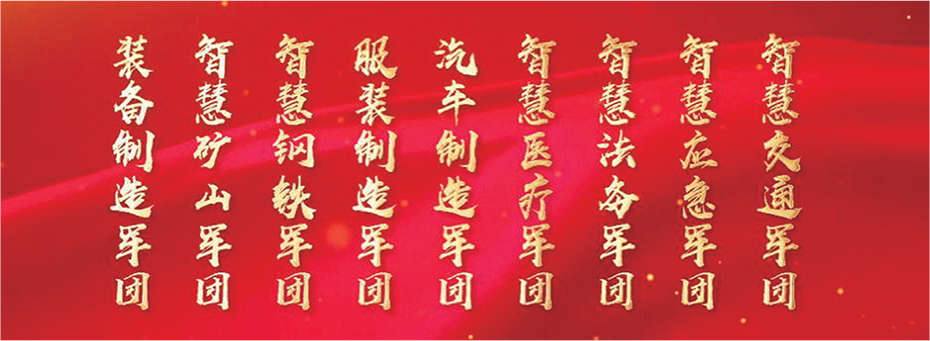 装备制造军团
智慧矿山军团
智慧钢铁军团
服装制造军团
汽车制造军团
智慧医疗军团
智慧法务军团
智慧应急军团
智慧交通军团